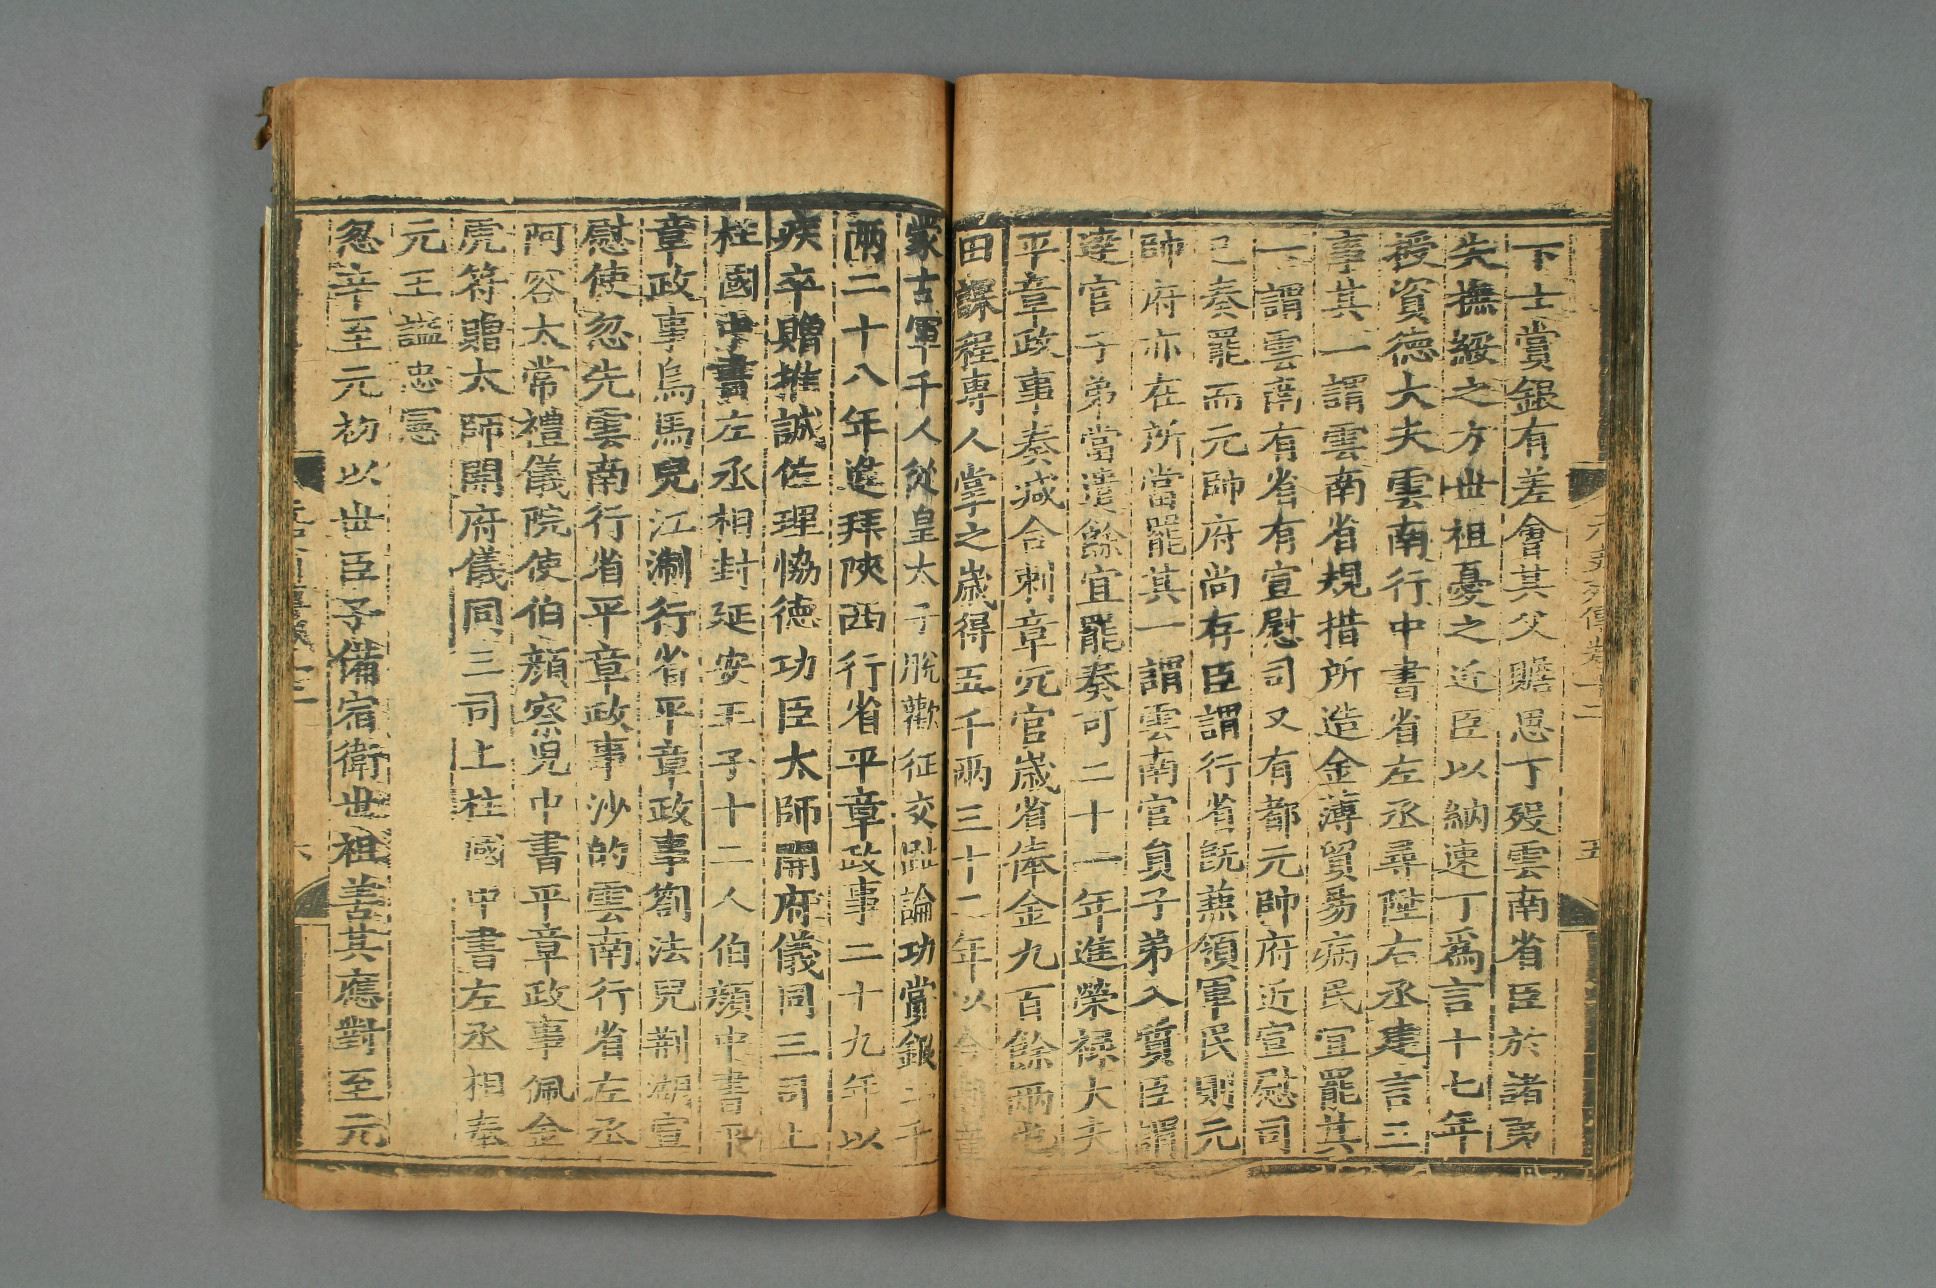 下士賞銀有差會其父贍思丁殁雲南省臣於諸夷
失撫綏之方世祖憂之近臣以納速丁爲言十七年
授資德大夫雲南行中書省左丞尋陞右丞建言三
事其一謂雲南省規措所造金薄貿易病民宜罷其
一謂雲南有省有宣慰司又有都元帥府近宣慰司
已奏罷而元帥府尚存臣謂行省既兼領軍民則元
帥府亦在所當罷其一謂雲南官員子弟入質臣謂
達官子弟當遣餘宜罷奏可二十一年進榮祿大夫
平章政事奏減合剌章冗官歲省俸金九百餘兩屯
田課程專人掌之歲得五千兩三十二年以
蒙古軍千人從皇太子脫歡征交趾論功賞銀二千
兩二十八年進拜陝西行省平章政事二十九年以
疾卒贈推誠佐理恊德功臣太師開府儀同三司上
柱國中書左丞相封延安王子十二人伯顏中書平
章政事烏馬兒江淛行省平章政事劄法兒荆湖宣
慰使忽先雲南行省平章政事沙的雲南行省左丞
阿容太常禮儀院使伯顏察兒中書平章政事佩金
虎符贈太師開府儀同三司上柱國中書左丞相奉
元王謚忠憲
忽辛至元初以世臣子備宿衛世祖善其應對至元